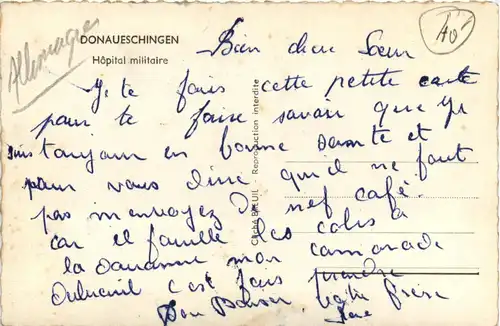 Allemagne
40
DONAUESCHINGEN
Hôpital militaire
Bien chere Sœur
Je te fais cette petite carte
pour te faire savoir que je
suis toujour en bonne sante et
pour vous dire qu'il ne faut
pas m'envoyez de nef café.
car il famille les colis a
la Douanne mon camarade
c'est fais prendre
Bon Baiser Votre frere
René
Cliché BREUIL - Reproduction interdite